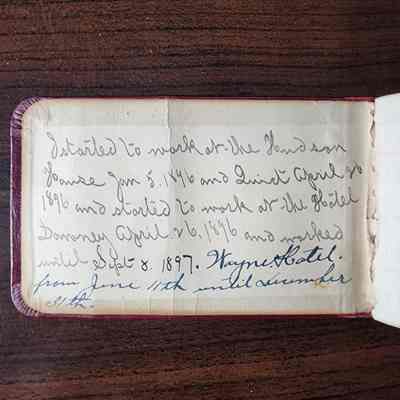 I started to work at the Hudson
House Jan 5. 1896 and Quit April 26
1896 and started to work at the Hotel
April 26. 1896 and worked
until Sept 8. 1897. Wayne Hotel.
from June 11th until December